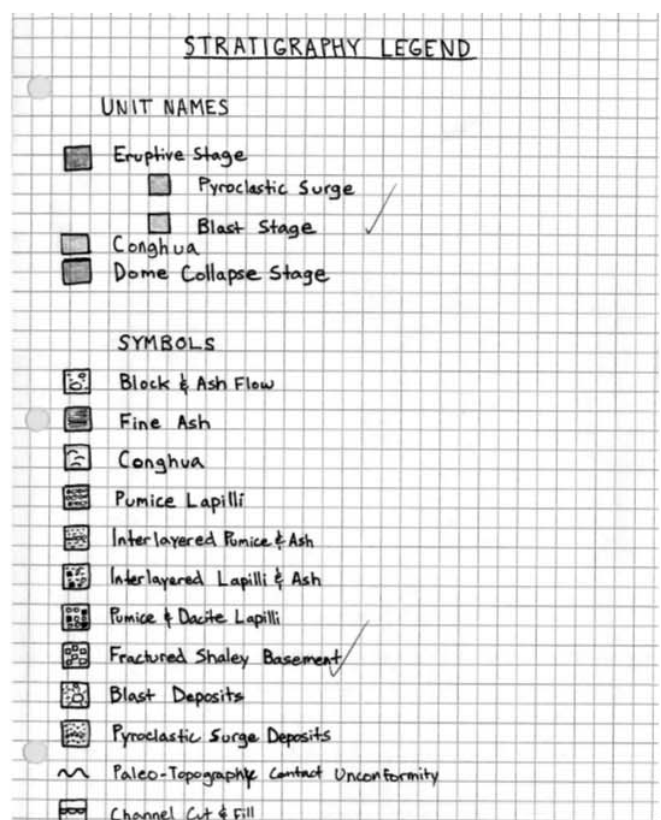 STRATIGRAPHY LEGEND
UNIT NAMES
Eruptive Stage
Pyroclastic Surge
Blast Stage
Conghua
Dome Collapse Stage
SYMBOLS
Block & Ash Flow
Fine Ash
Conghua
Pumice Lapilli
Interlayered Pumice & Ash
Interlayered Lapilli & Ash
Pumice & Dacite Lapilli
Fractured Shaley Basement
Blast Deposits
Pyroclastic Surge Deposits
Paleo-Topography Contact Unconformity
Channel Cut & Fill